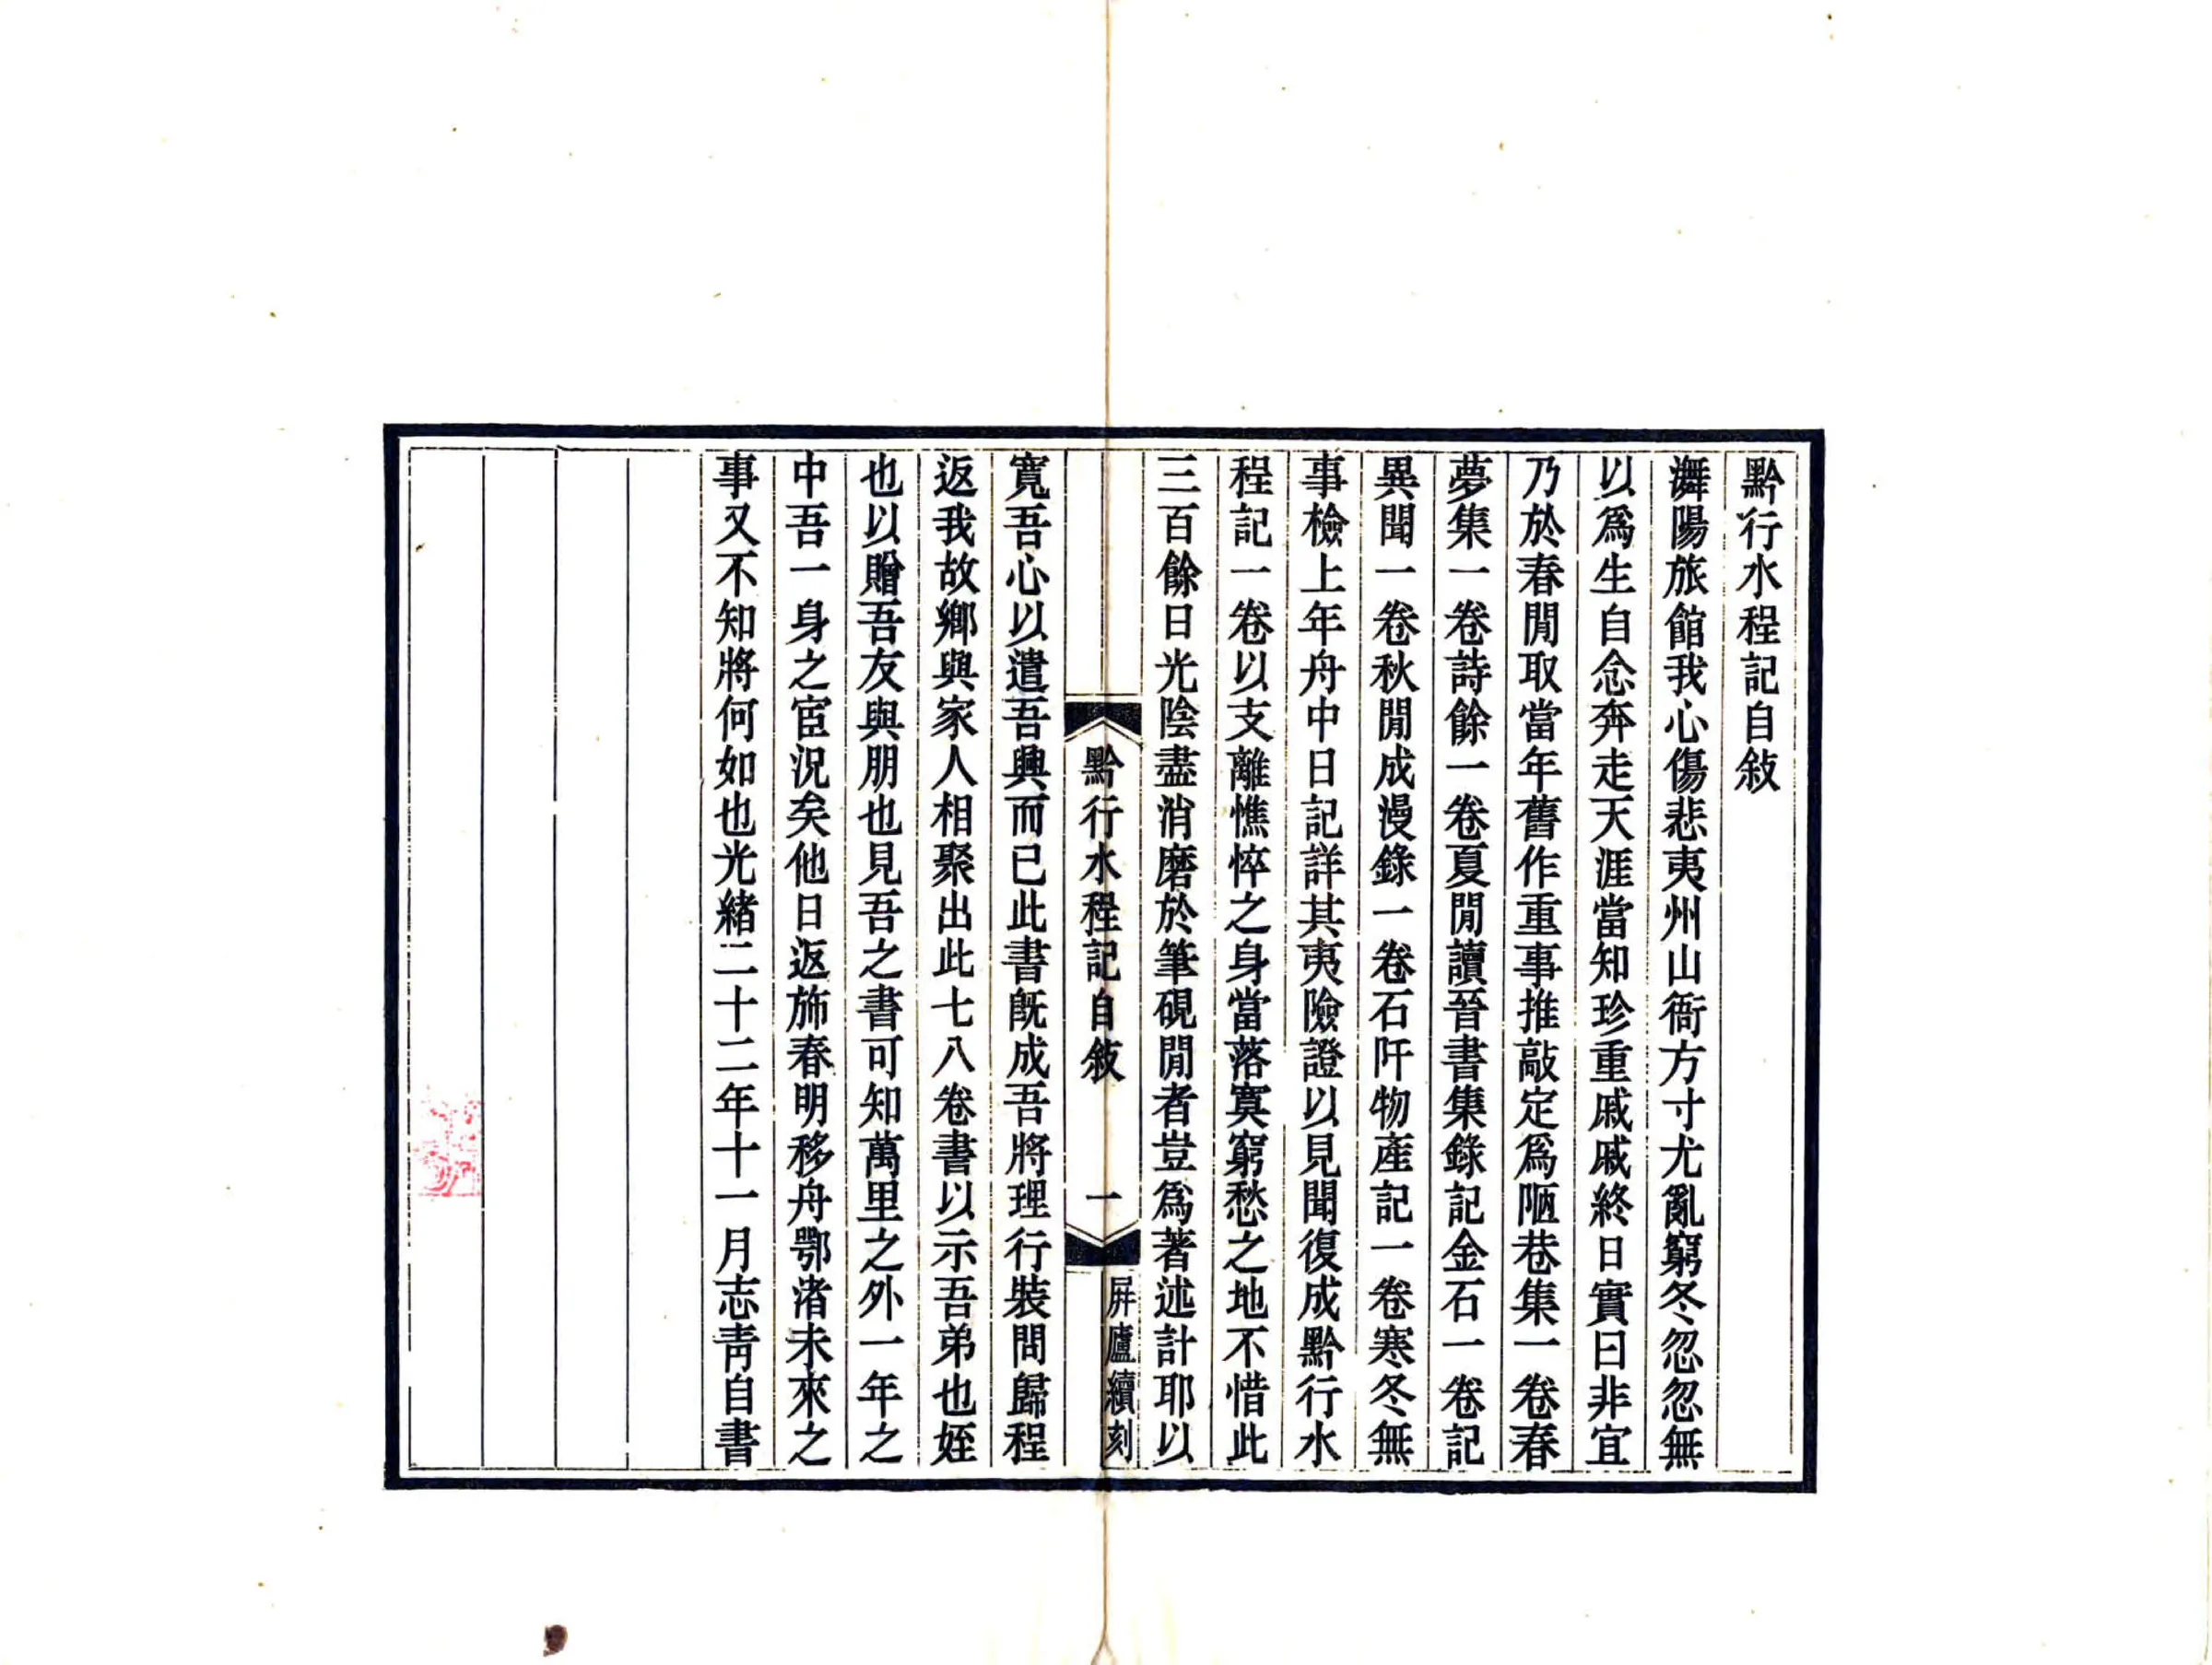 黔行水程記自敍
㵲陽旅館我心傷悲夷州山衙方寸尤亂窮冬忽忽無
以爲生自念奔走天涯當知珍重戚戚終日實曰非宜
乃於春閒取當年舊作重事推敲定爲陋巷集一卷春
夢集一卷詩餘一卷夏閒讀晉書集錄記金石一卷記
異聞一卷秋閒成漫錄一卷石阡物產記一卷寒冬無
事檢上年舟中日記詳其夷險證以見聞復成黔行水
程記一卷以支離憔悴之身當落寞窮愁之地不惜此
三百餘日光陰盡消磨於筆硯閒者豈爲著述計耶以
黔行水程記自敍 一
屛廬續刻
寬吾心以遣吾興而已此書旣成吾將理行裝問歸程
返我故鄉與家人相聚出此七八卷書以示吾弟也姪
也以贈吾友與朋也見吾之書可知萬里之外一年之
中吾一身之宦況矣他日返旆春明移舟鄂渚未來之
事又不知將何如也光緒二十二年十一月志靑自書